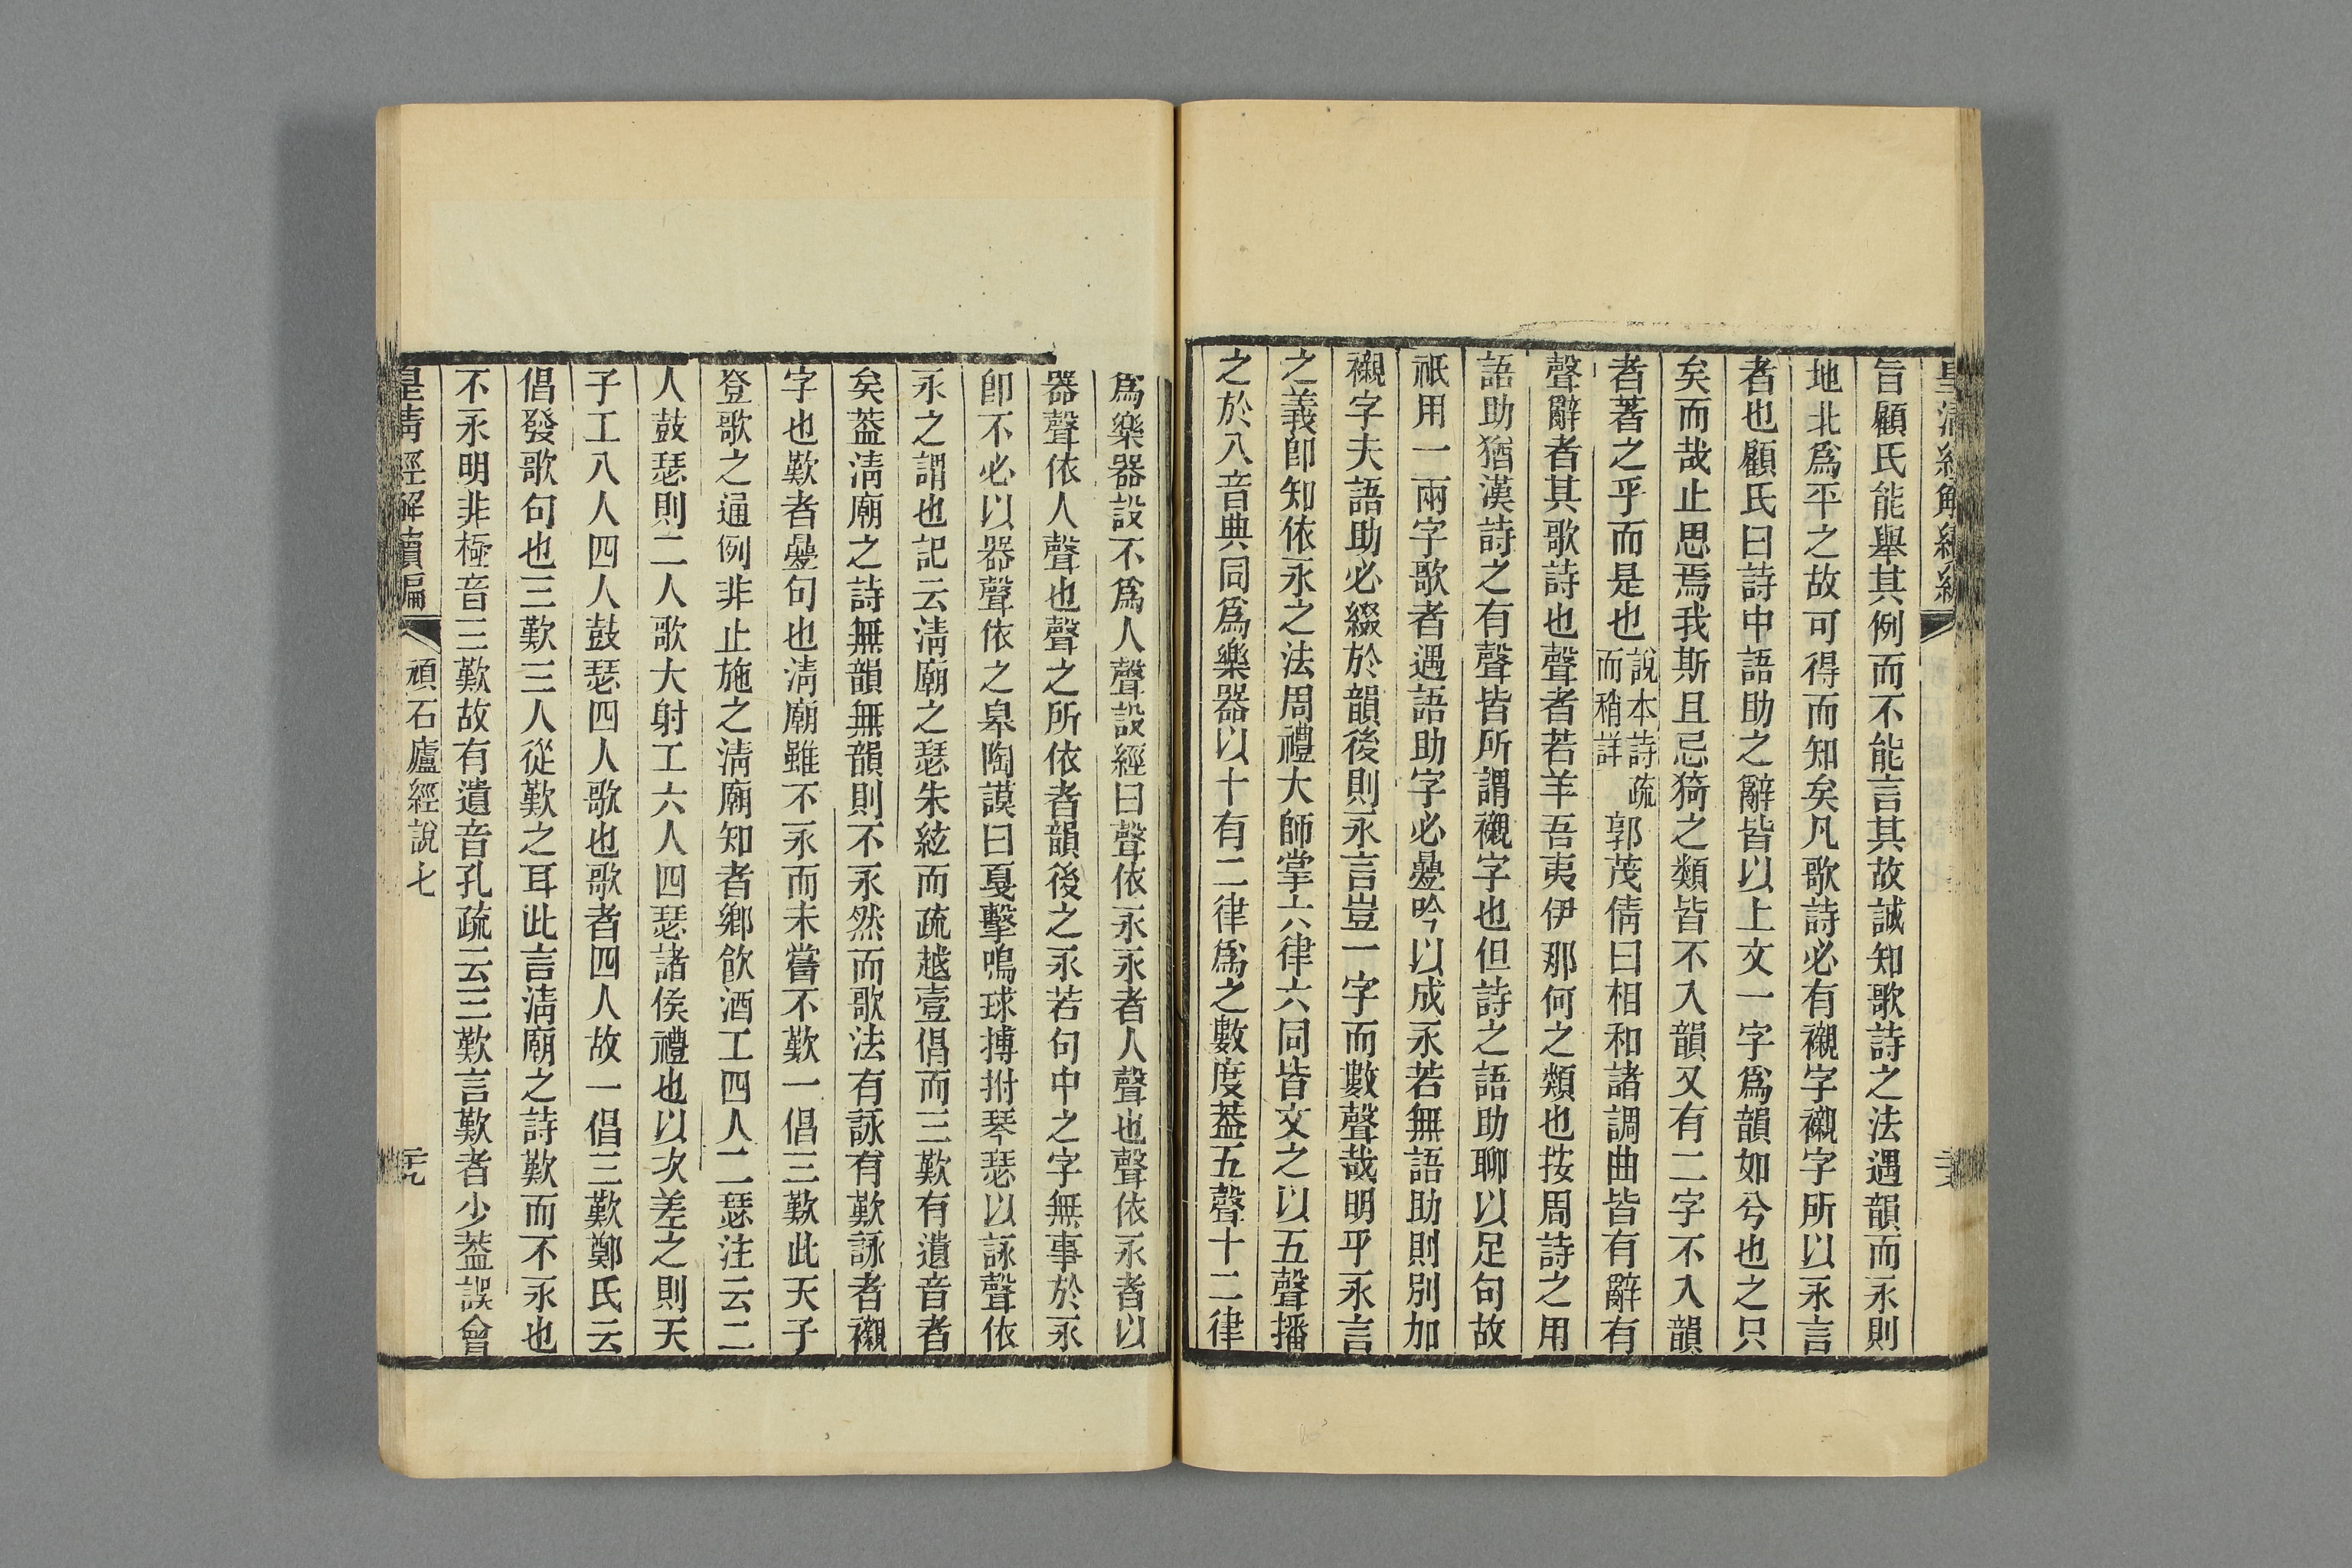 旨顧氏能舉其例而不能言其故誠知歌詩之法遇韻而永則
地北爲平之故可得而知矣凡歌詩必有襯字襯字所以永言
者也顧氏曰詩中語助之辭皆以上文一字爲韻如兮也之只
矣而哉止思焉我斯且忌猗之類皆不入韻又有二字不入韻
者著之乎而是也說本詩疏而稍詳郭茂倩曰相和諸調曲皆有辭有
聲辭者其歌詩也聲者若羊吾夷伊那何之類也按周詩之用
語助猶漢詩之有聲皆所謂襯字也但詩之語助聊以足句故
祇用一兩字歌者遇語助字必疊吟以成永若無語助則別加
襯字夫語助必綴於韻後則永言豈一字而數聲哉明乎永言
之義卽知依永之法周禮大師掌六律六同皆文之以五聲播
之於八音典同爲樂器以十有二律爲之數度葢五聲十二律
爲樂器設不爲人聲設經曰聲依永永者人聲也聲依永者以
器聲依人聲也聲之所依者韻後之永若句中之字無事於永
卽不必以器聲依之皋陶謨曰戛擊鳴球搏拊琴瑟以詠聲依
永之謂也記云淸廟之瑟朱絃而疏越壹倡而三歎有遺音者
矣葢淸廟之詩無韻無韻則不永然而歌法有詠有歎詠者襯
字也歎者疊句也淸廟雖不永而未嘗不歎一倡三歎此天子
登歌之通例非止施之淸廟知者鄉飮酒工四人二瑟注云二
人鼓瑟則二人歌大射工六人四瑟諸侯禮也以次差之則天
子工八人四人鼓瑟四人歌也歌者四人故一倡三歎鄭氏云
倡發歌句也三歎三人從歎之耳此言淸廟之詩歎而不永也
不永明非極音三歎故有遺音孔疏云三歎言歎者少葢誤會
皇淸經解續編
頑石廬經說七